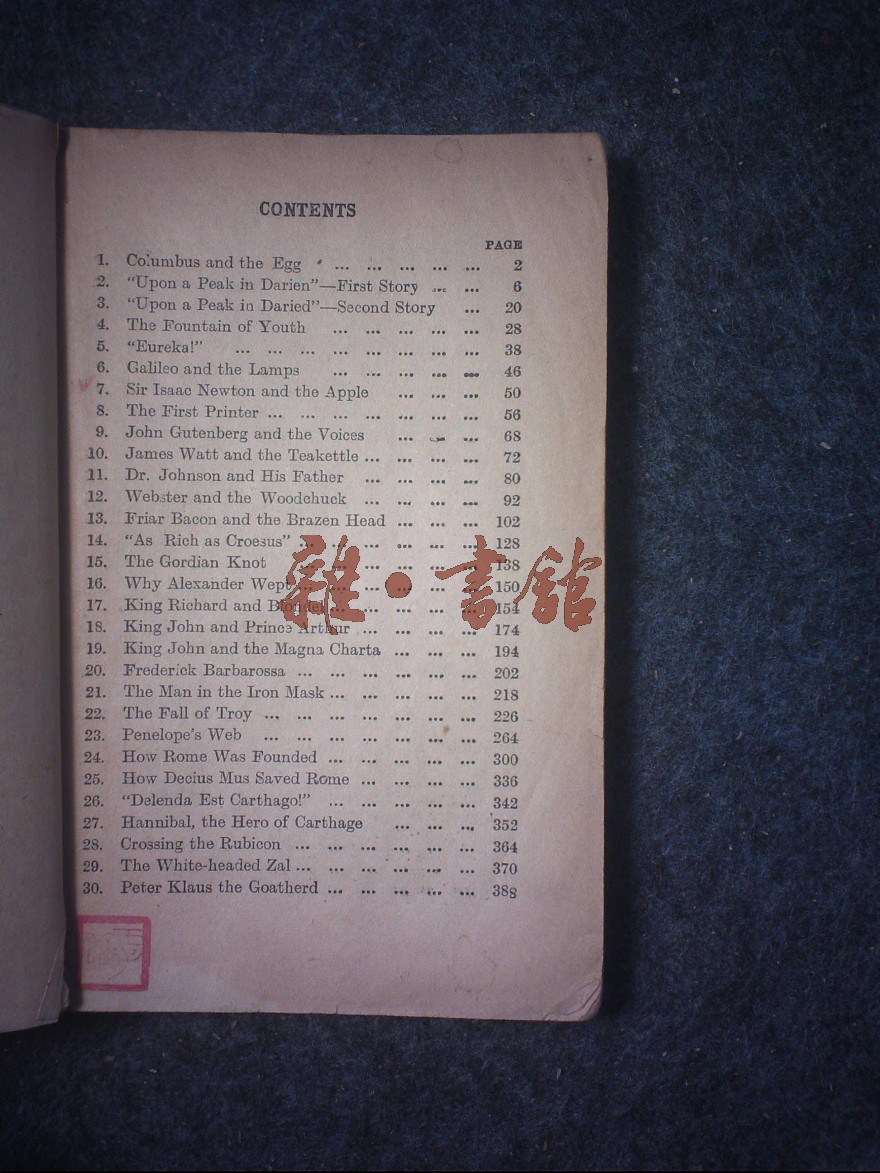 CONTENTS
PAGE
1. Columbus and the Egg ... ... ... ... ... 2
2. "Upon a Peak in Darien"—First Story ... ... 6
3. "Upon a Peak in Daried"—Second Story ... 20
4. The Fountain of Youth ... ... ... ... ... 28
5. "Eureka!" ... ... ... ... ... ... ... ... 38
6. Galileo and the Lamps ... ... ... ... ... 46
7. Sir Isaac Newton and the Apple ... ... ... 50
8. The First Printer ... ... ... ... ... ... ... 56
9. John Gutenberg and the Voices ... ... ... 68
10. James Watt and the Teakettle ... ... ... ... 72
11. Dr. Johnson and His Father ... ... ... ... 80
12. Webster and the Woodchuck ... ... ... ... 92
13. Friar Bacon and the Brazen Head ... ... ... 102
14. "As Rich as Croesus" ... ... ... ... ... ... 128
15. The Gordian Knot ... ... ... ... ... ... 138
16. Why Alexander Wept ... ... ... ... ... ... 150
17. King Richard and Blondel ... ... ... ... ... 154
18. King John and Prince Arthur ... ... ... ... 174
19. King John and the Magna Charta ... ... ... 194
20. Frederick Barbarossa ... ... ... ... ... ... 202
21. The Man in the Iron Mask ... ... ... ... ... 218
22. The Fall of Troy ... ... ... ... ... ... ... 226
23. Penelope's Web ... ... ... ... ... ... ... 264
24. How Rome Was Founded ... ... ... ... ... 300
25. How Decius Mus Saved Rome ... ... ... ... 336
26. "Delenda Est Carthago!" ... ... ... ... ... 342
27. Hannibal, the Hero of Carthage ... ... ... 352
28. Crossing the Rubicon ... ... ... ... ... ... 364
29. The White-headed Zal ... ... ... ... ... ... 370
30. Peter Klaus the Goatherd ... ... ... ... ... 388
雜·書館